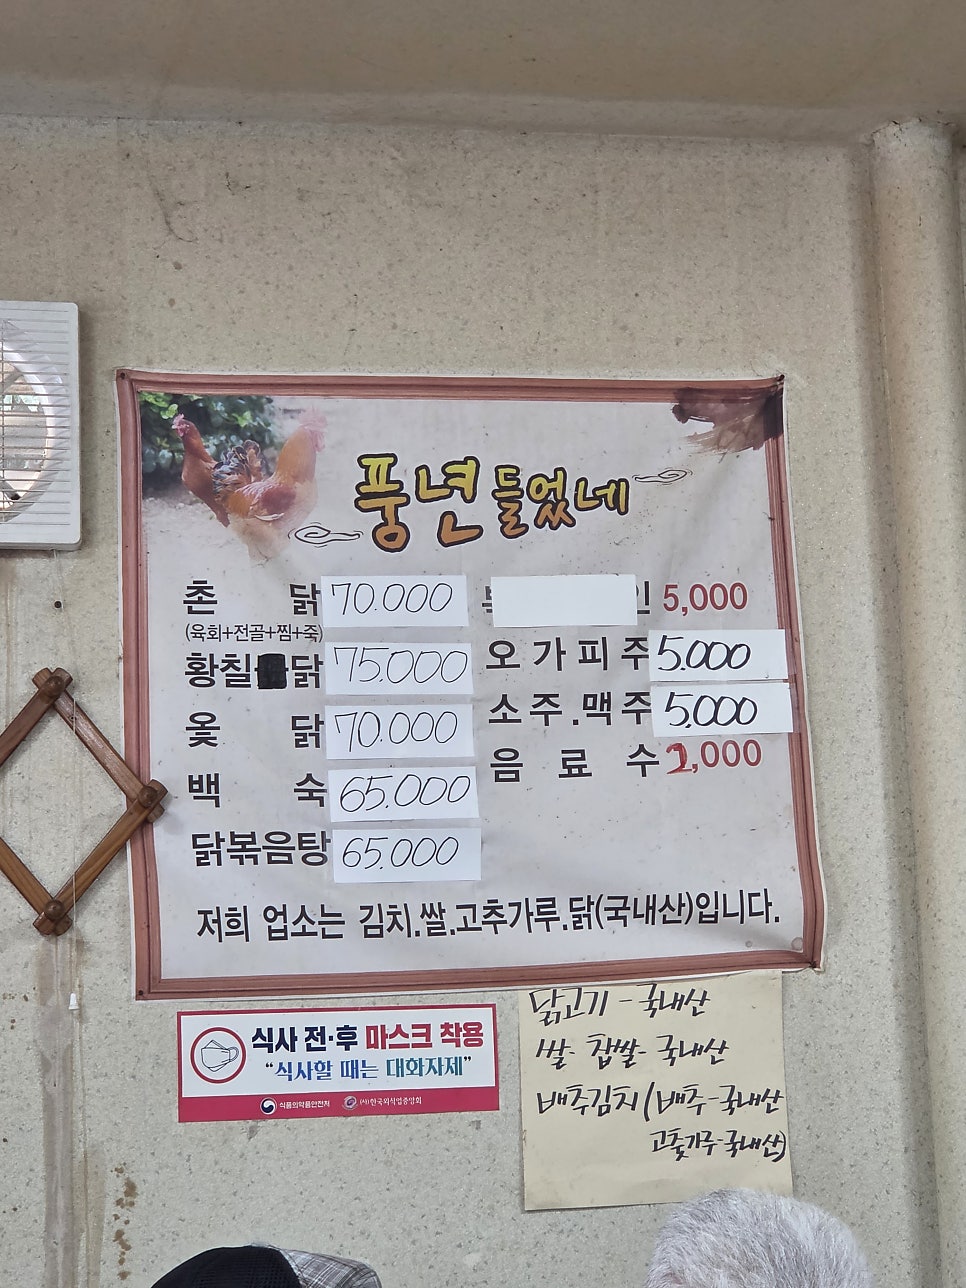 풍년들었네
촌 닭 70.000
(육회+전골+찜+죽)
황칠 닭 75.000
옻 닭 70.000
백 숙 65.000
닭볶음탕 65.000
5,000
오가피주 5.000
소주.맥주 5,000
음 료 수 2,000
저희 업소는 김치.쌀.고추가루.닭(국내산)입니다.
식사 전·후 마스크 착용
“식사할 때는 대화자제”
식품의약품안전처 (사)한국외식업중앙회
닭고기 - 국내산
쌀- 찹쌀- 국내산
배추김치(배추-국내산
고춧가루-국내산)